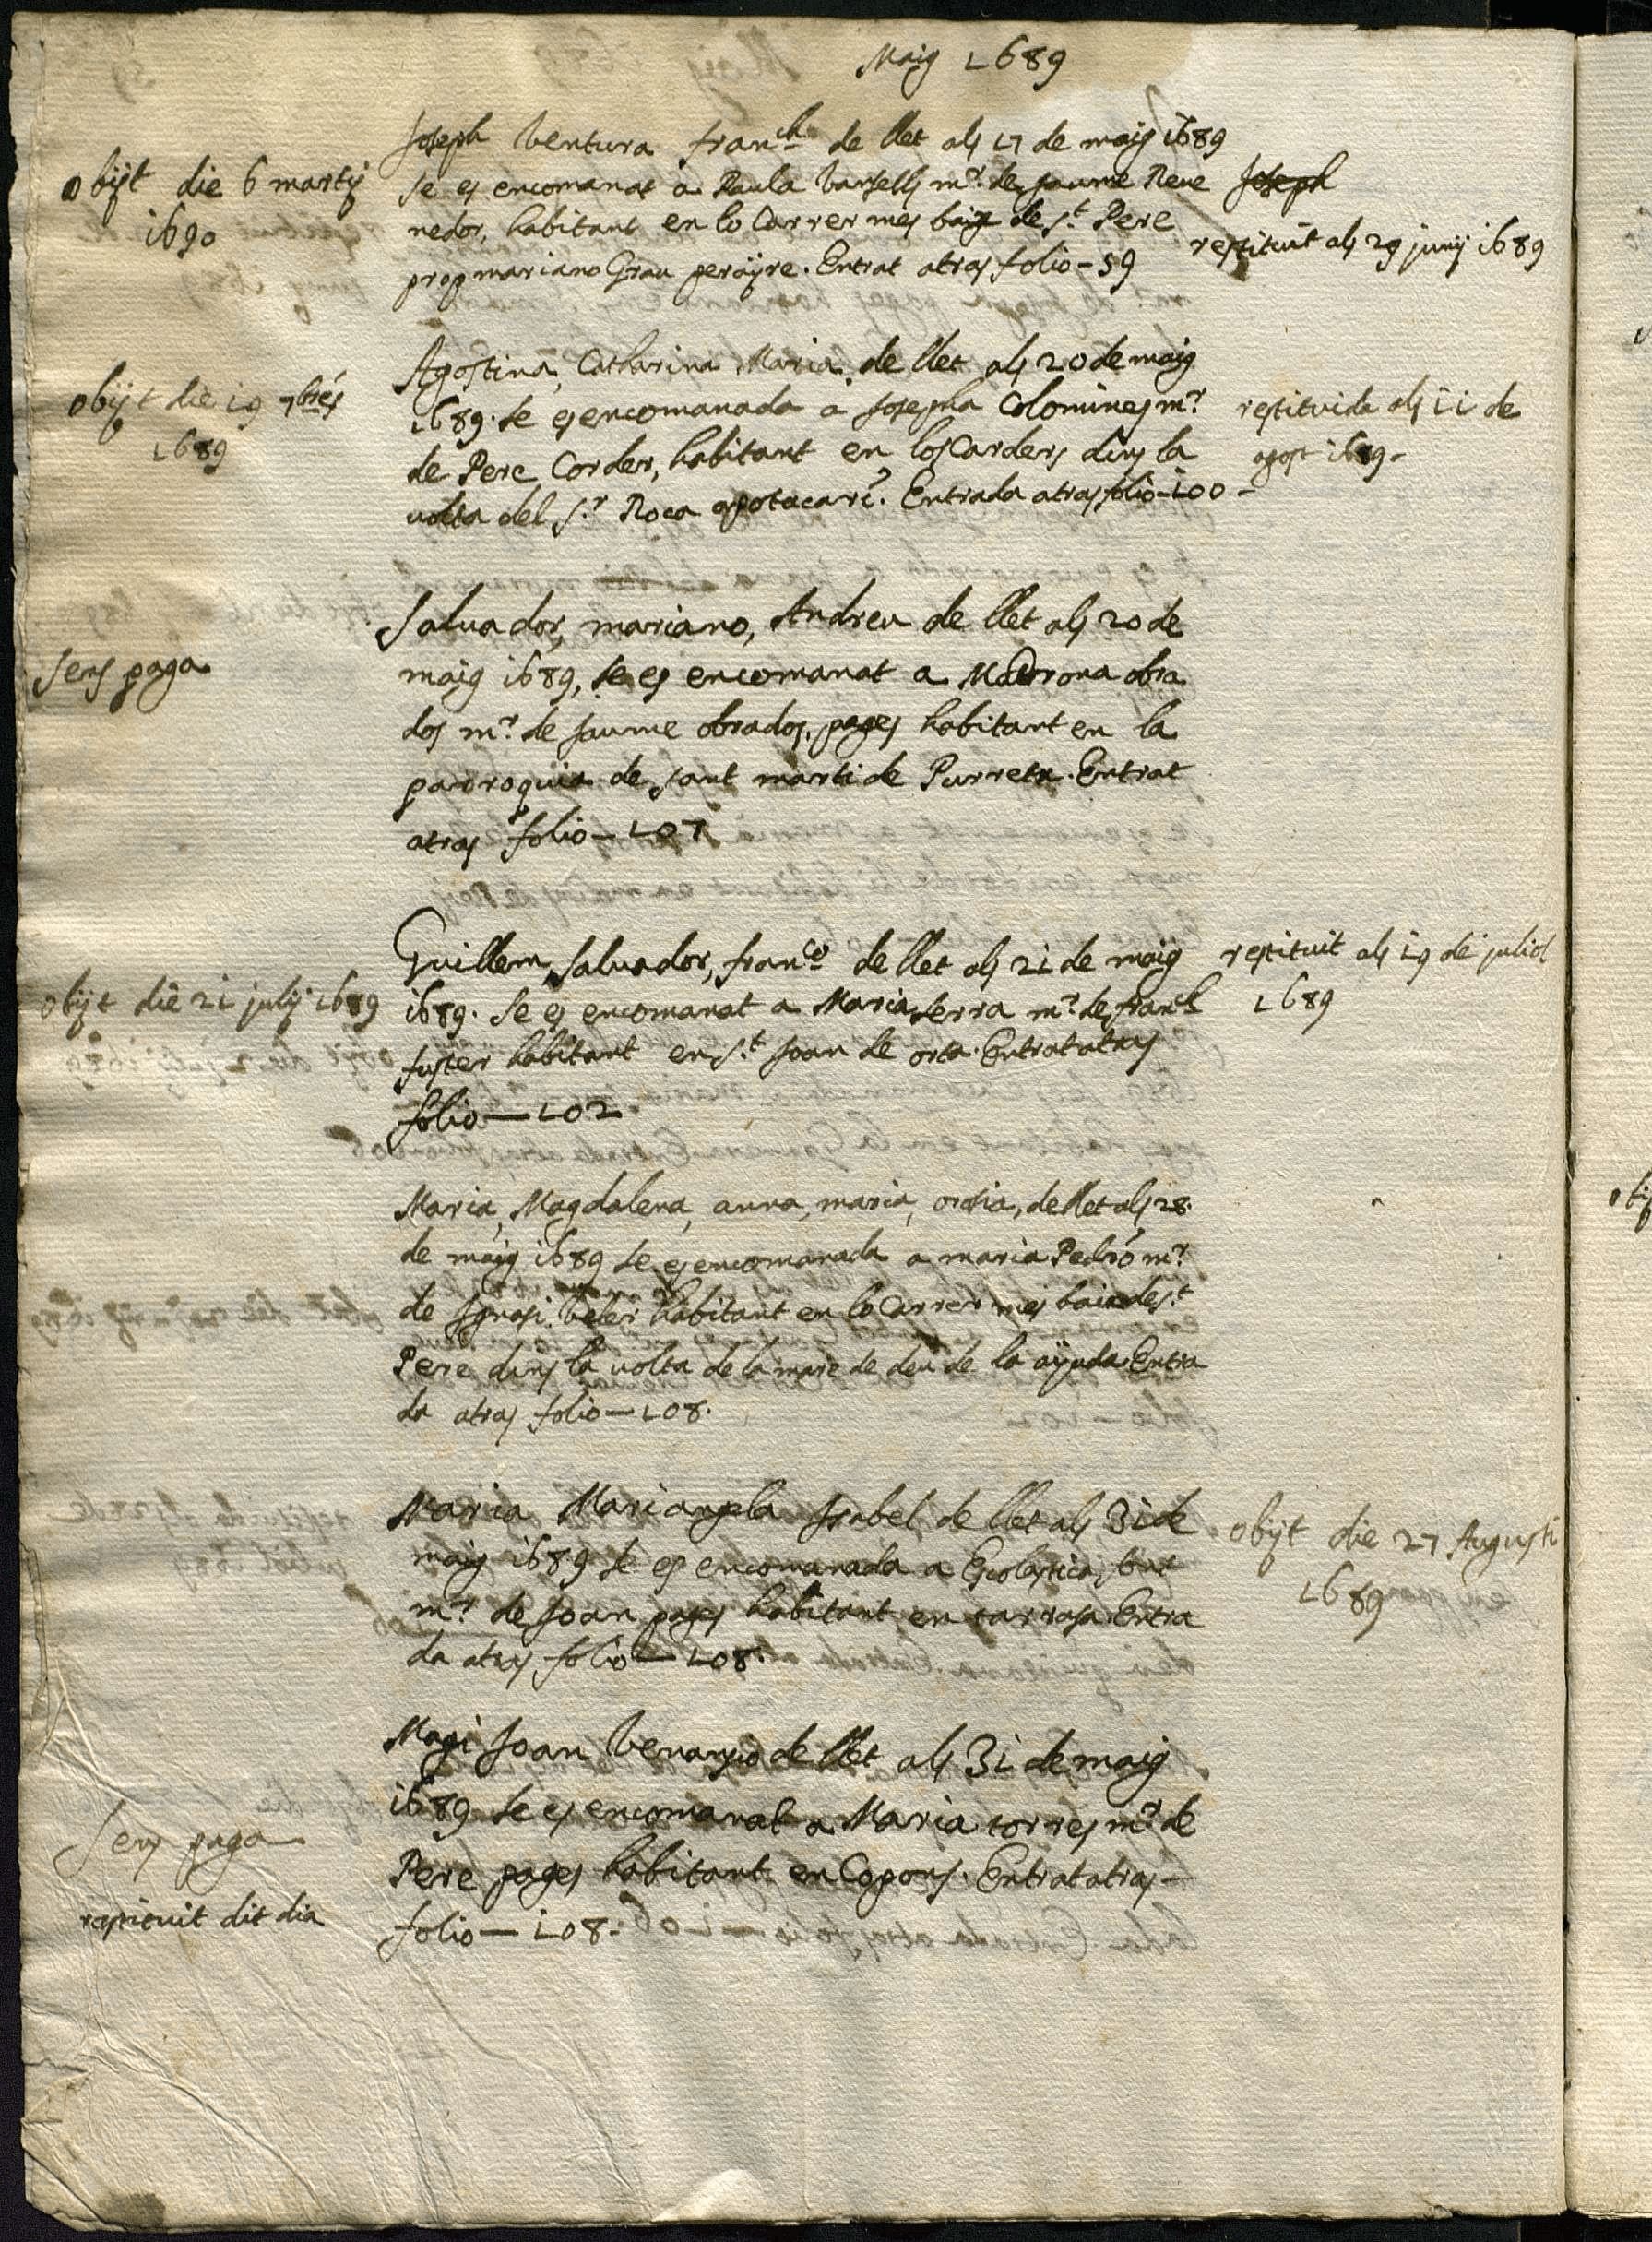 Maig 1689
obijt die 6 martij
1690
Joseph Ventura fran.ch de llet als 17 de maig 1689
se es encomanat a Paula Vansells m.r de Jaume Reve
nedor, habitant en lo Carrer mes baix de S.t Pere
prop mariano Grau perayre. Entrat atras folio - 59
Joseph
restituit als 29 junij 1689
obijt die 19 7bres
1689
Agostina, Catharina Maria, de llet als 20 de maig
1689. se es encomanada a Josepha Colomines m.r
de Pere Corder, habitant en los Carders dins la
volta del S.r Roca apotacari. Entrada atras folio - 100 -
restituida als 11 de
agost 1689 -
sens paga
Salvador, mariano, Andreu de llet als 20 de
maig 1689, se es encomanat a Madrona obra
dos m.r de Jaume obrados, pages habitant en la
parroquia de sant marti de Entrat
atras folio - 107
obijt die 21 julij 1689
Guillem, Salvador, fran.co de llet als 21 de maig
1689. se es encomanat a Maria Serra m.r de fran.ch
fuster habitant en S.t Joan de orta. Entrat atras
folio - 102
restituit als 19 de juliol
1689
Maria, Magdalena, anna, maria, de llet als 28.
de maig 1689 se es encomanada a maria Pedró m.r
de Ignasi Veler habitant en lo Carrer mes baix de S.t
Pere dins la volta de la mare de deu de la ajuda. Entra
da atras folio - 108.
Maria Mariangela Isabel de llet als 31 de
maig 1689 se es encomanada a Escolastica font
m.r de Joan pages habitant en tarrasa. Entra
da atras folio - 108.
obijt die 27 Augusti
1689
sens paga
restituit dit dia
Magi Joan Venansio de llet als 31 de maig
1689 se es encomanat a Maria torres m.r de
Pere pages habitant en Copons. Entrat atras -
folio - 108 -